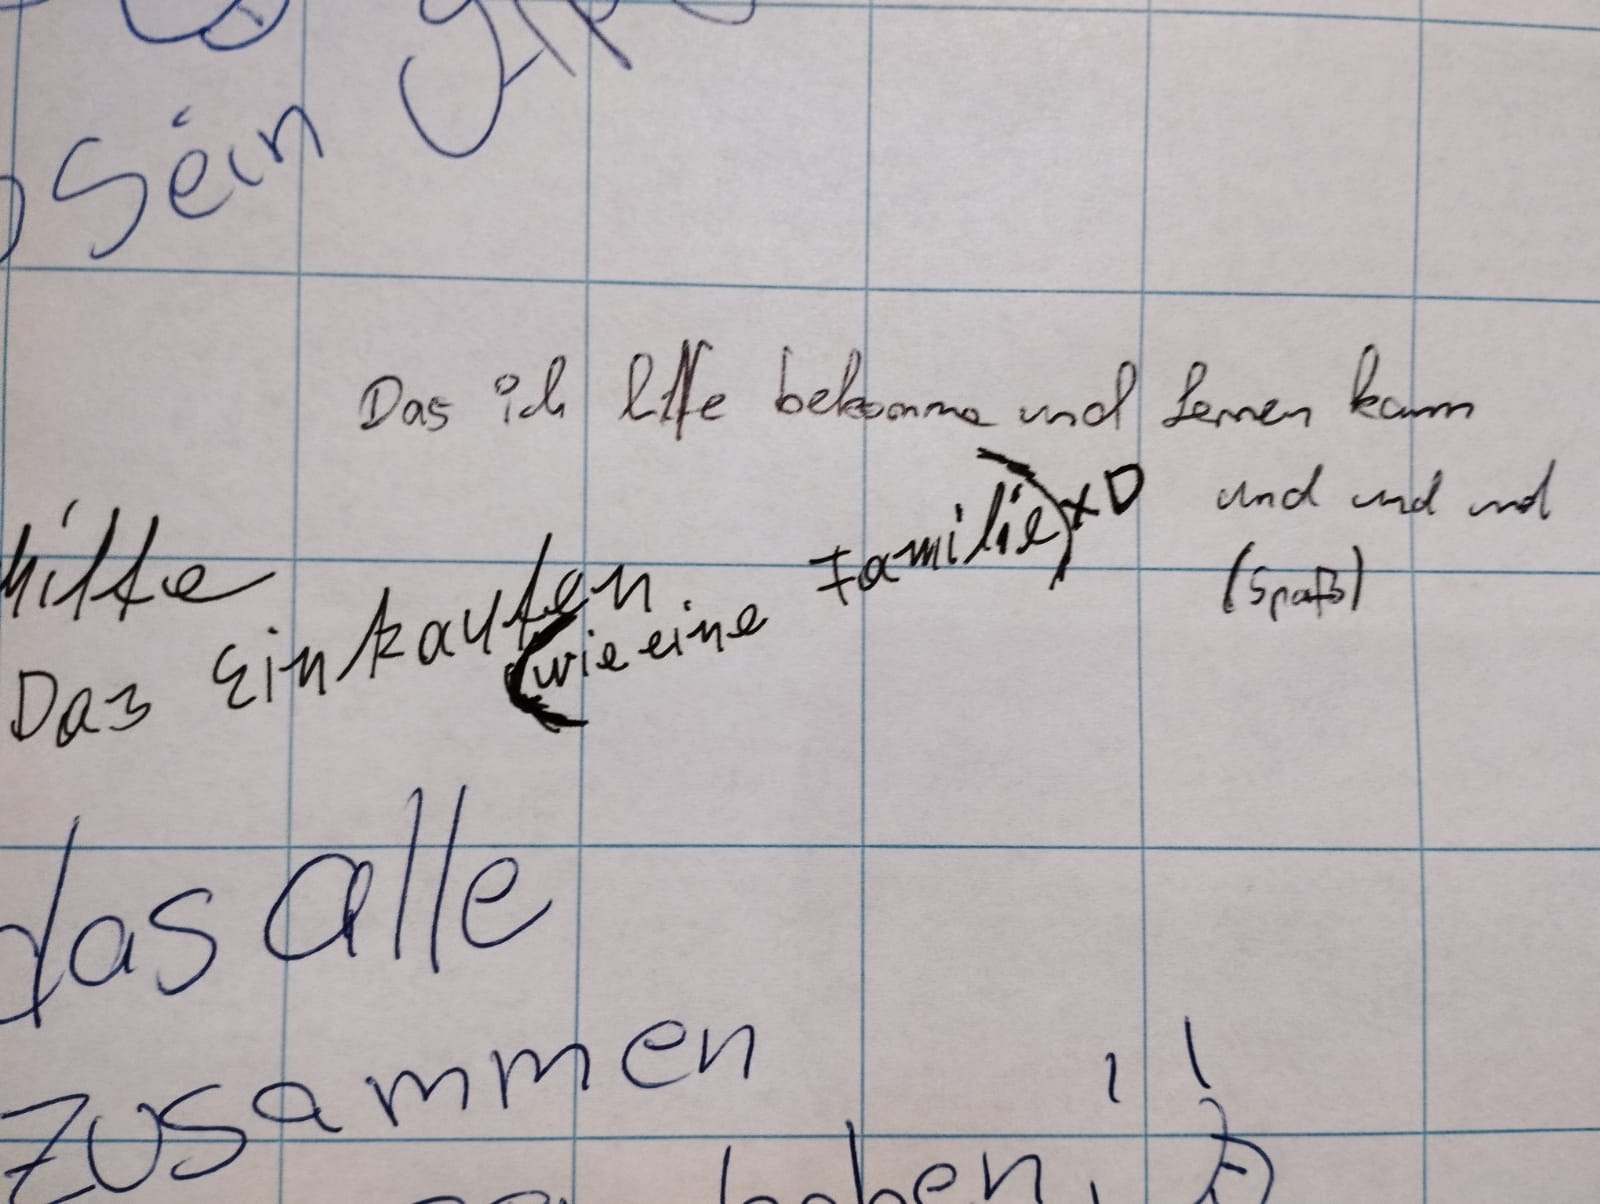 sein
Das ich hilfe bekomme und lernen kann
und und und
(Spaß)
hilfe
Das Einkaufen (wie eine Familie) XD
das alle
zusammen
haben